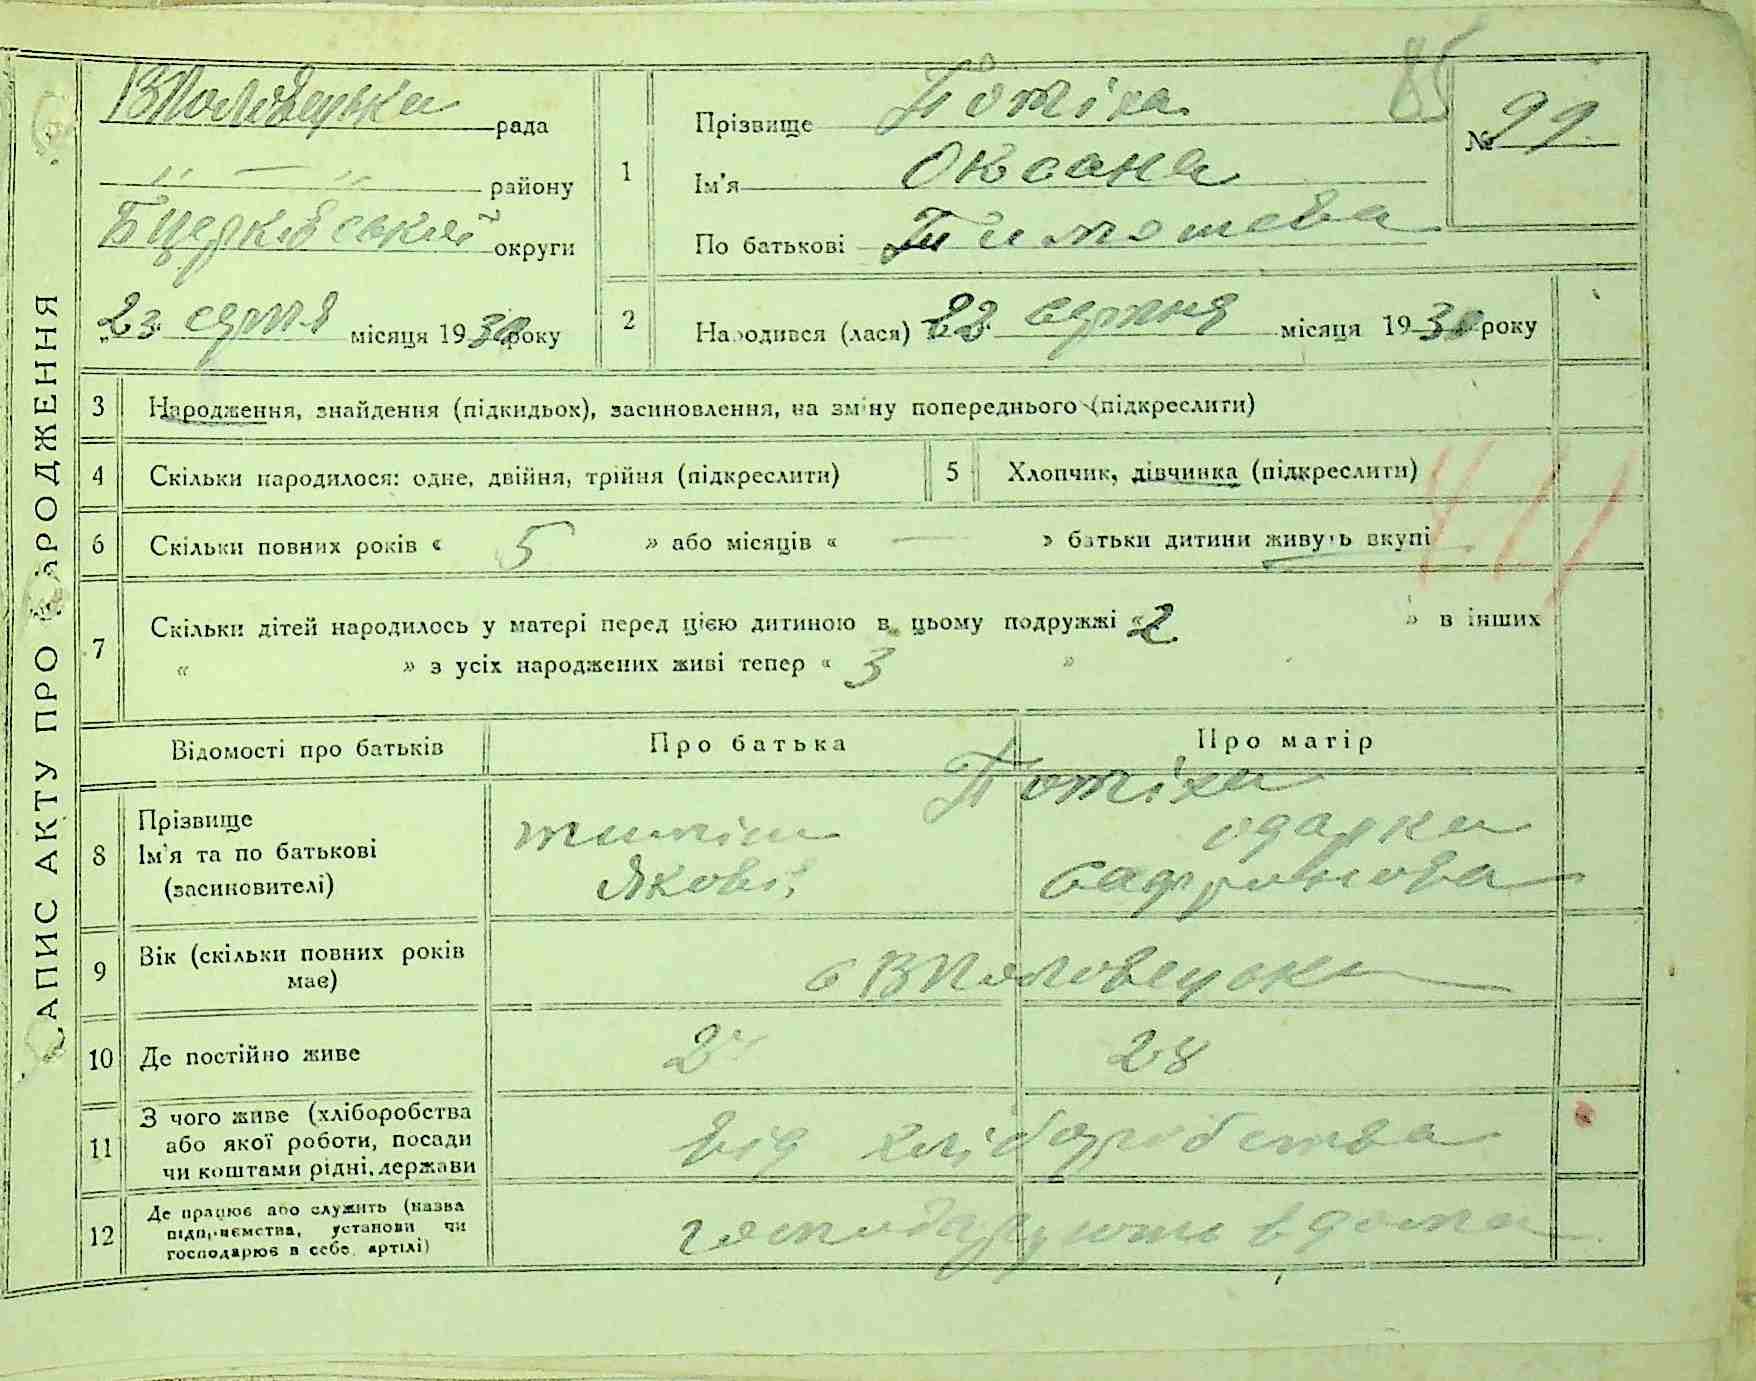 85
ВПоловецька рада
" — " району
БЦерківський округи
„23 серпня місяця 1930 року
1
Прізвище Потіха
Ім'я Оксана
По батькові Тимошева
№ 99
2
Народився (лася) 23 серпня місяця 1930 року
ЗАПИС АКТУ ПРО НАРОДЖЕННЯ
3 Народження, знайдення (підкидьок), засиновлення, на зміну попереднього (підкреслити)
4 Скільки народилося: одне, двійня, трійня (підкреслити)
5 Хлопчик, дівчинка (підкреслити)
6 Скільки повних років « 5 » або місяців « — » батьки дитини живуть вкупі
7 Скільки дітей народилось у матері перед цією дитиною в цьому подружжі « 2 » в інших
« » з усіх народжених живі тепер « 3 »
Відомості про батьків Про батька Про матір
Потіха
8 Прізвище
Ім'я та по батькові
(засиновителі)
тиміш одарка
Якові Сафронова
9 Вік (скільки повних років
має)
с ВПоловецька
10 Де постійно живе 28
11 З чого живе (хліборобства
або якої роботи, посади
чи коштами рідні, держави
від хліборобства
12 Де працює або служить (назва
підприємства, установи чи
господарює в себе, артілі)
господарують вдома